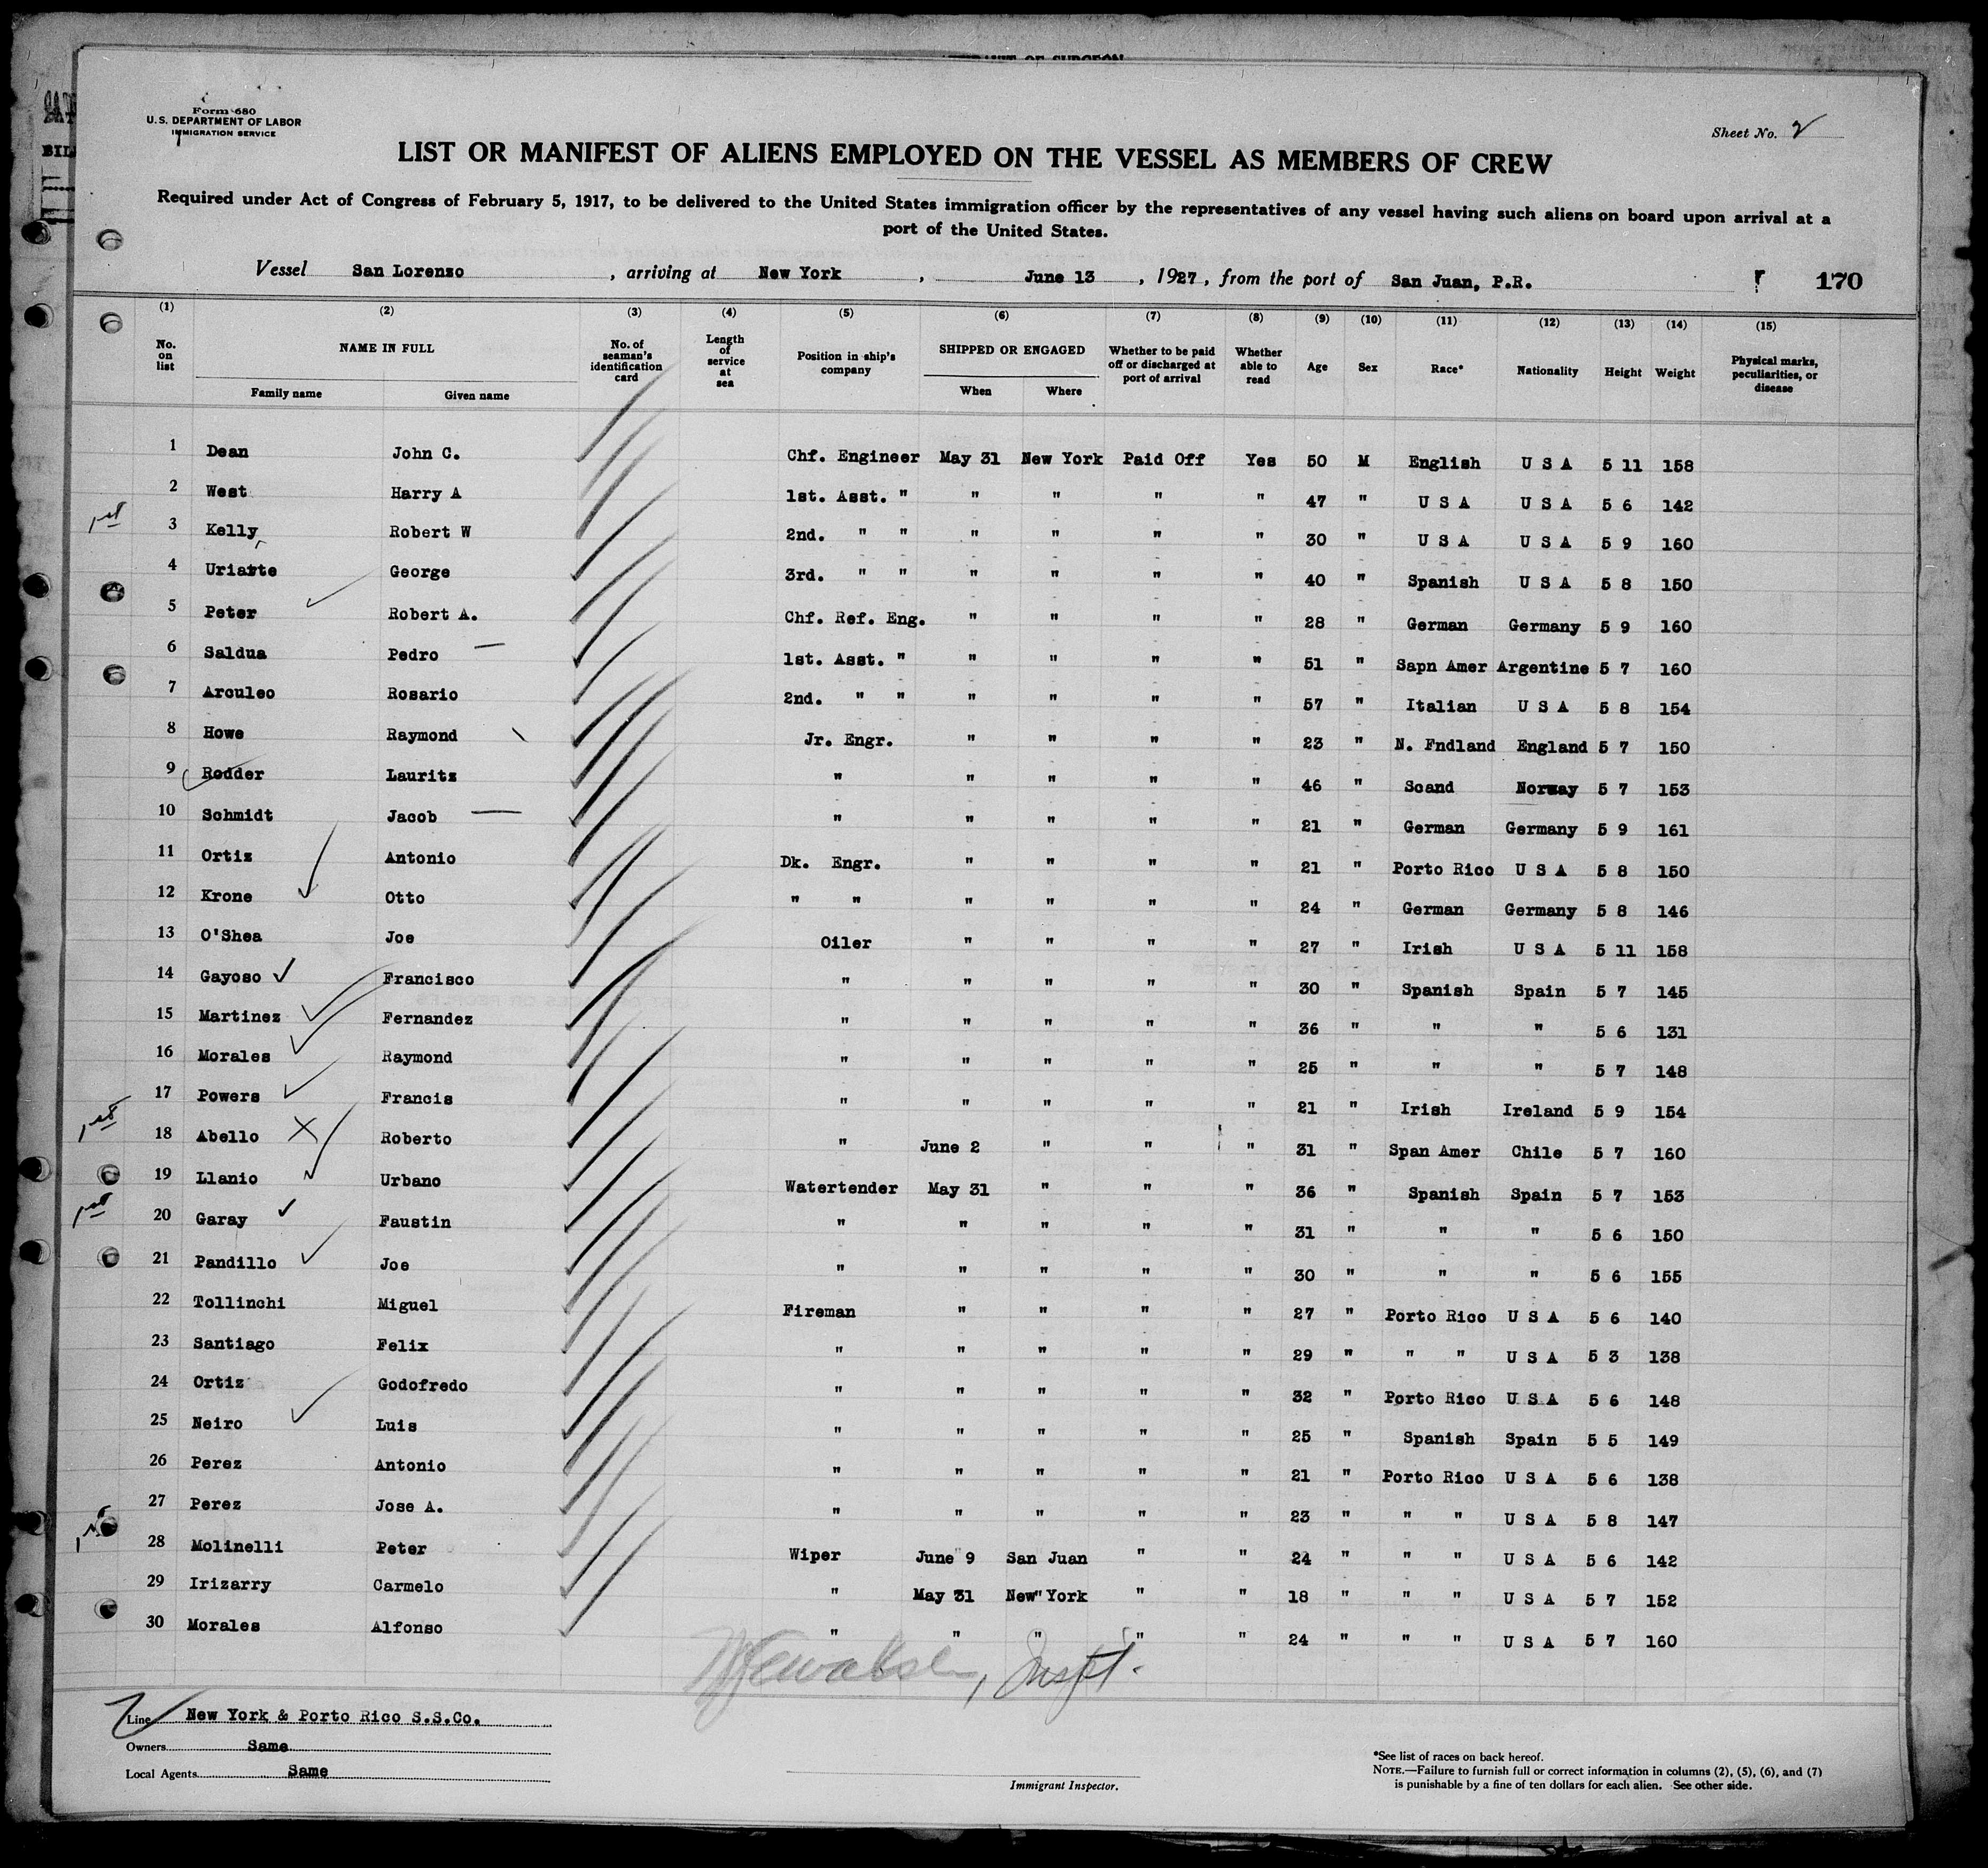 Form 680
U.S. DEPARTMENT OF LABOR
IMMIGRATION SERVICE
Sheet No. 2
LIST OR MANIFEST OF ALIENS EMPLOYED ON THE VESSEL AS MEMBERS OF CREW
Required under Act of Congress of February 5, 1917, to be delivered to the United States immigration officer by the representatives of any vessel having such aliens on board upon arrival at a
port of the United States.
Vessel San Lorenzo, arriving at New York, June 13, 1927, from the port of San Juan, P.R. 170
(1) (2) (3) (4) (5) (6) (7) (8) (9) (10) (11) (12) (13) (14) (15)
No. on list NAME IN FULL Family name Given name No. of seaman's identification card Length of service at sea Position in ship's company SHIPPED OR ENGAGED When Where Whether to be paid off or discharged at port of arrival Whether able to read Age Sex Race* Nationality Height Weight Physical marks, peculiarities, or disease
1 Dean John C. Chf. Engineer May 31 New York Paid Off Yes 50 M English U S A 5 11 158
2 West Harry A 1st. Asst. " " " " " 47 " U S A U S A 5 6 142
3 Kelly Robert W 2nd. " " " " " " 30 " U S A U S A 5 9 160
4 Uriarte George 3rd. " " " " " " 40 " Spanish U S A 5 8 150
5 Peter Robert A. Chf. Ref. Eng. " " " " 28 " German Germany 5 9 160
6 Saldua Pedro 1st. Asst. " " " " " 51 " Sapn Amer Argentine 5 7 160
7 Arculeo Rosario 2nd. " " " " " " 57 " Italian U S A 5 8 154
8 Howe Raymond Jr. Engr. " " " " 23 " N. Fndland England 5 7 150
9 Rodder Lauritz " " " " " 46 " Scand Norway 5 7 153
10 Schmidt Jacob " " " " " 21 " German Germany 5 9 161
11 Ortiz Antonio Dk. Engr. " " " " 21 " Porto Rico U S A 5 8 150
12 Krone Otto " " " " " " 24 " German Germany 5 8 146
13 O'Shea Joe Oiler " " " " 27 " Irish U S A 5 11 158
14 Gayoso Francisco " " " " " 30 " Spanish Spain 5 7 145
15 Martinez Fernandez " " " " " 36 " " " 5 6 131
16 Morales Raymond " " " " " 25 " " " 5 7 148
17 Powers Francis " " " " " 21 " Irish Ireland 5 9 154
18 Abello Roberto " June 2 " " " 31 " Span Amer Chile 5 7 160
19 Llanio Urbano Watertender May 31 " " " 36 " Spanish Spain 5 7 153
20 Garay Faustin " " " " " 31 " " " 5 6 150
21 Pandillo Joe " " " " " 30 " " " 5 6 155
22 Tollinchi Miguel Fireman " " " " 27 " Porto Rico U S A 5 6 140
23 Santiago Felix " " " " " 29 " " " U S A 5 3 138
24 Ortiz Godofredo " " " " " 32 " Porto Rico U S A 5 6 148
25 Neiro Luis " " " " " 25 " Spanish Spain 5 5 149
26 Perez Antonio " " " " " 21 " Porto Rico U S A 5 6 138
27 Perez Jose A. " " " " " 23 " " " U S A 5 8 147
28 Molinelli Peter Wiper June 9 San Juan " " 24 " " " U S A 5 6 142
29 Irizarry Carmelo " May 31 New York " " 18 " " " U S A 5 7 152
30 Morales Alfonso " " " " " 24 " " " U S A 5 7 160
Inspt.
Line New York & Porto Rico S.S.Co.
Owners Same
Local Agents Same
Immigrant Inspector.
*See list of races on back hereof.
NOTE.—Failure to furnish full or correct information in columns (2), (5), (6), and (7)
is punishable by a fine of ten dollars for each alien. See other side.